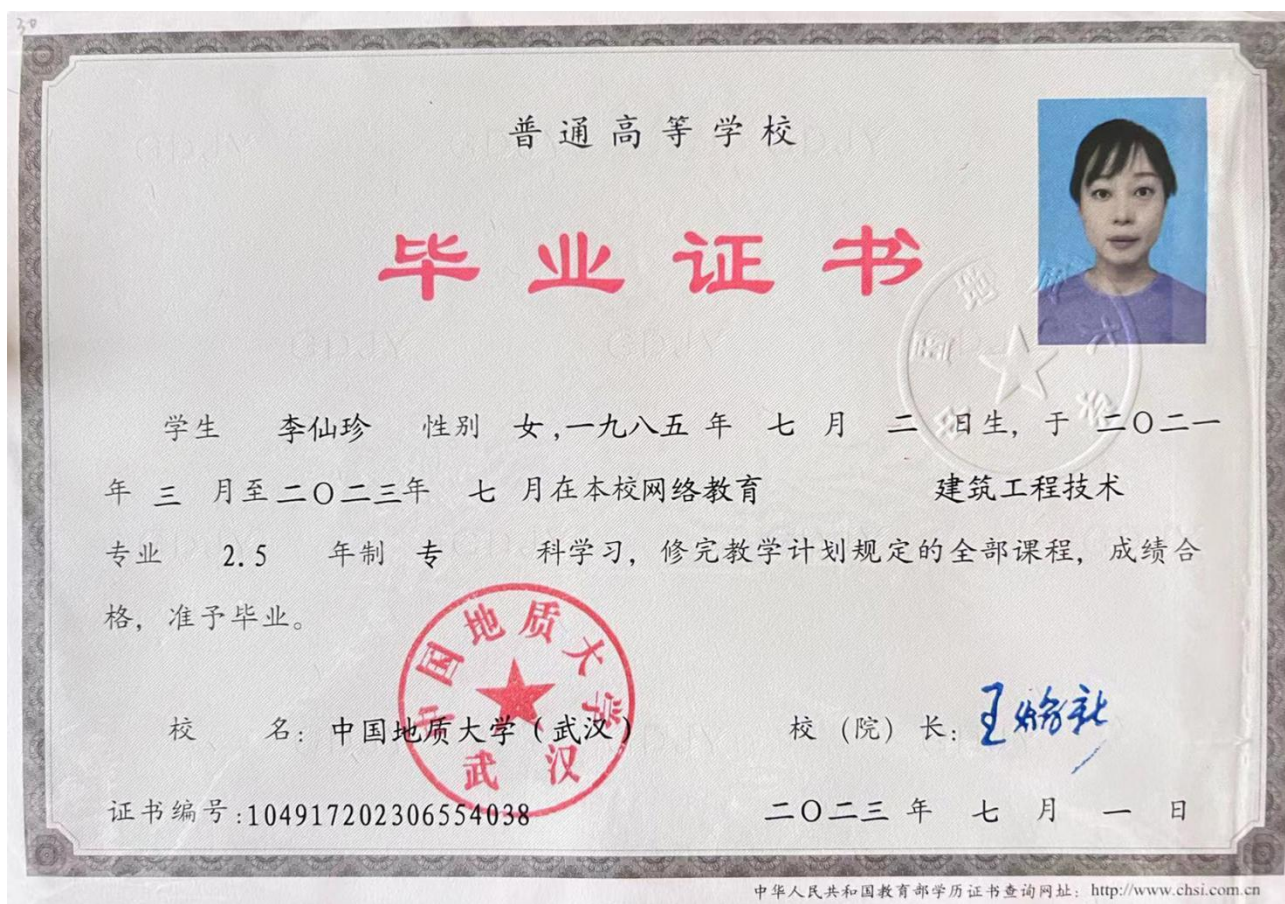 30
普通高等学校
毕业证书
学生 李仙珍 性别 女,一九八五年 七 月 二 日生, 于 二〇二一
年 三 月至二〇二三年 七 月在本校网络教育 建筑工程技术
专业 2.5 年制 专 科学习, 修完教学计划规定的全部课程, 成绩合
格, 准予毕业。
中国地质大学
武汉
校 名: 中国地质大学(武汉) 校(院)长:
证书编号:104917202306554038 二〇二三 年 七 月 一 日
中华人民共和国教育部学历证书查询网址: http://www.chsi.com.cn